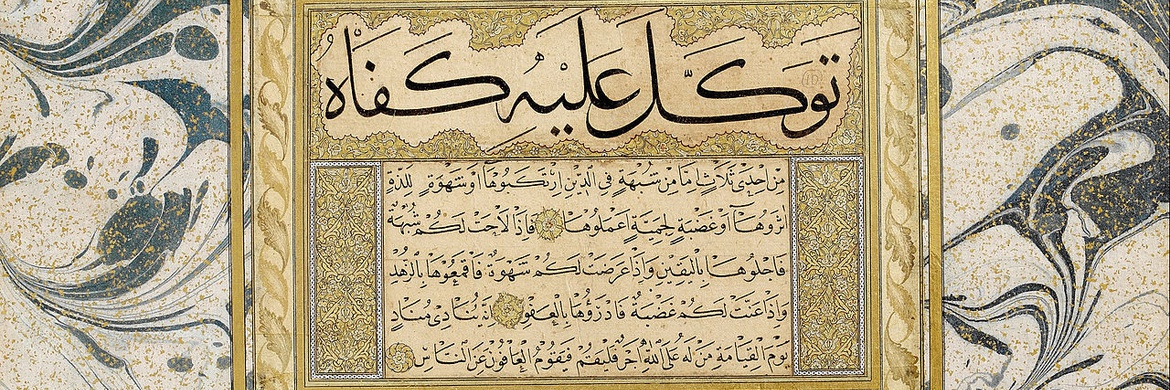 تَوَكَّلَ عَلَيْهِ كَفَاهُ
مِنْ اِحْدٰى ثَلَاثٍ اِمَّا مِنْ شُبْهَةٍ فِي الدِّينِ اِرْتَكَبُوهَا اَوْ شَهْوَةٍ لِلَذَّةٍ
اٰثَرُوهَا اَوْ غَضْبَةٍ لِحَمِيَّةٍ اَعْمَلُوهَا فَاِذَا لَاحَتْ لَكُمْ شُبْهَةٌ
فَاجْلُوهَا بِالْيَقِينِ وَاِذَا عَرَضَتْ لَكُمْ شَهْوَةٌ فَاقْمَعُوهَا بِالزُّهْدِ
وَاِذَا عَنَّتْ لَكُمْ غَضْبَةٌ فَادْرَؤُهَا بِالْعَفْوِ اِنَّهُ يُنَادِى مُنَادٍ
يَوْمَ الْقِيَامَةِ مَنْ لَهُ عَلَى اللّٰهِ اَجْرٌ فَلْيَقُمْ فَيَقُومُ الْعَافُونَ عَنِ النَّاسِ